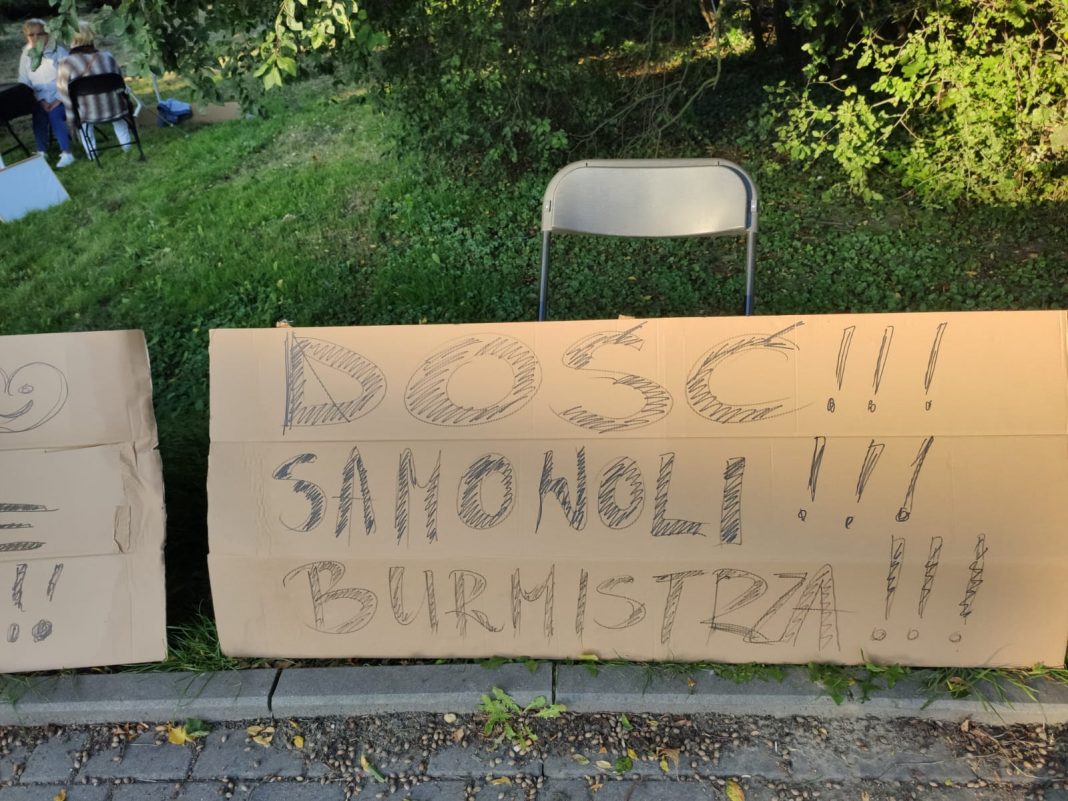 DOŚĆ !!!
SAMONOLI !!!
BURMISTRZA !!!
!!